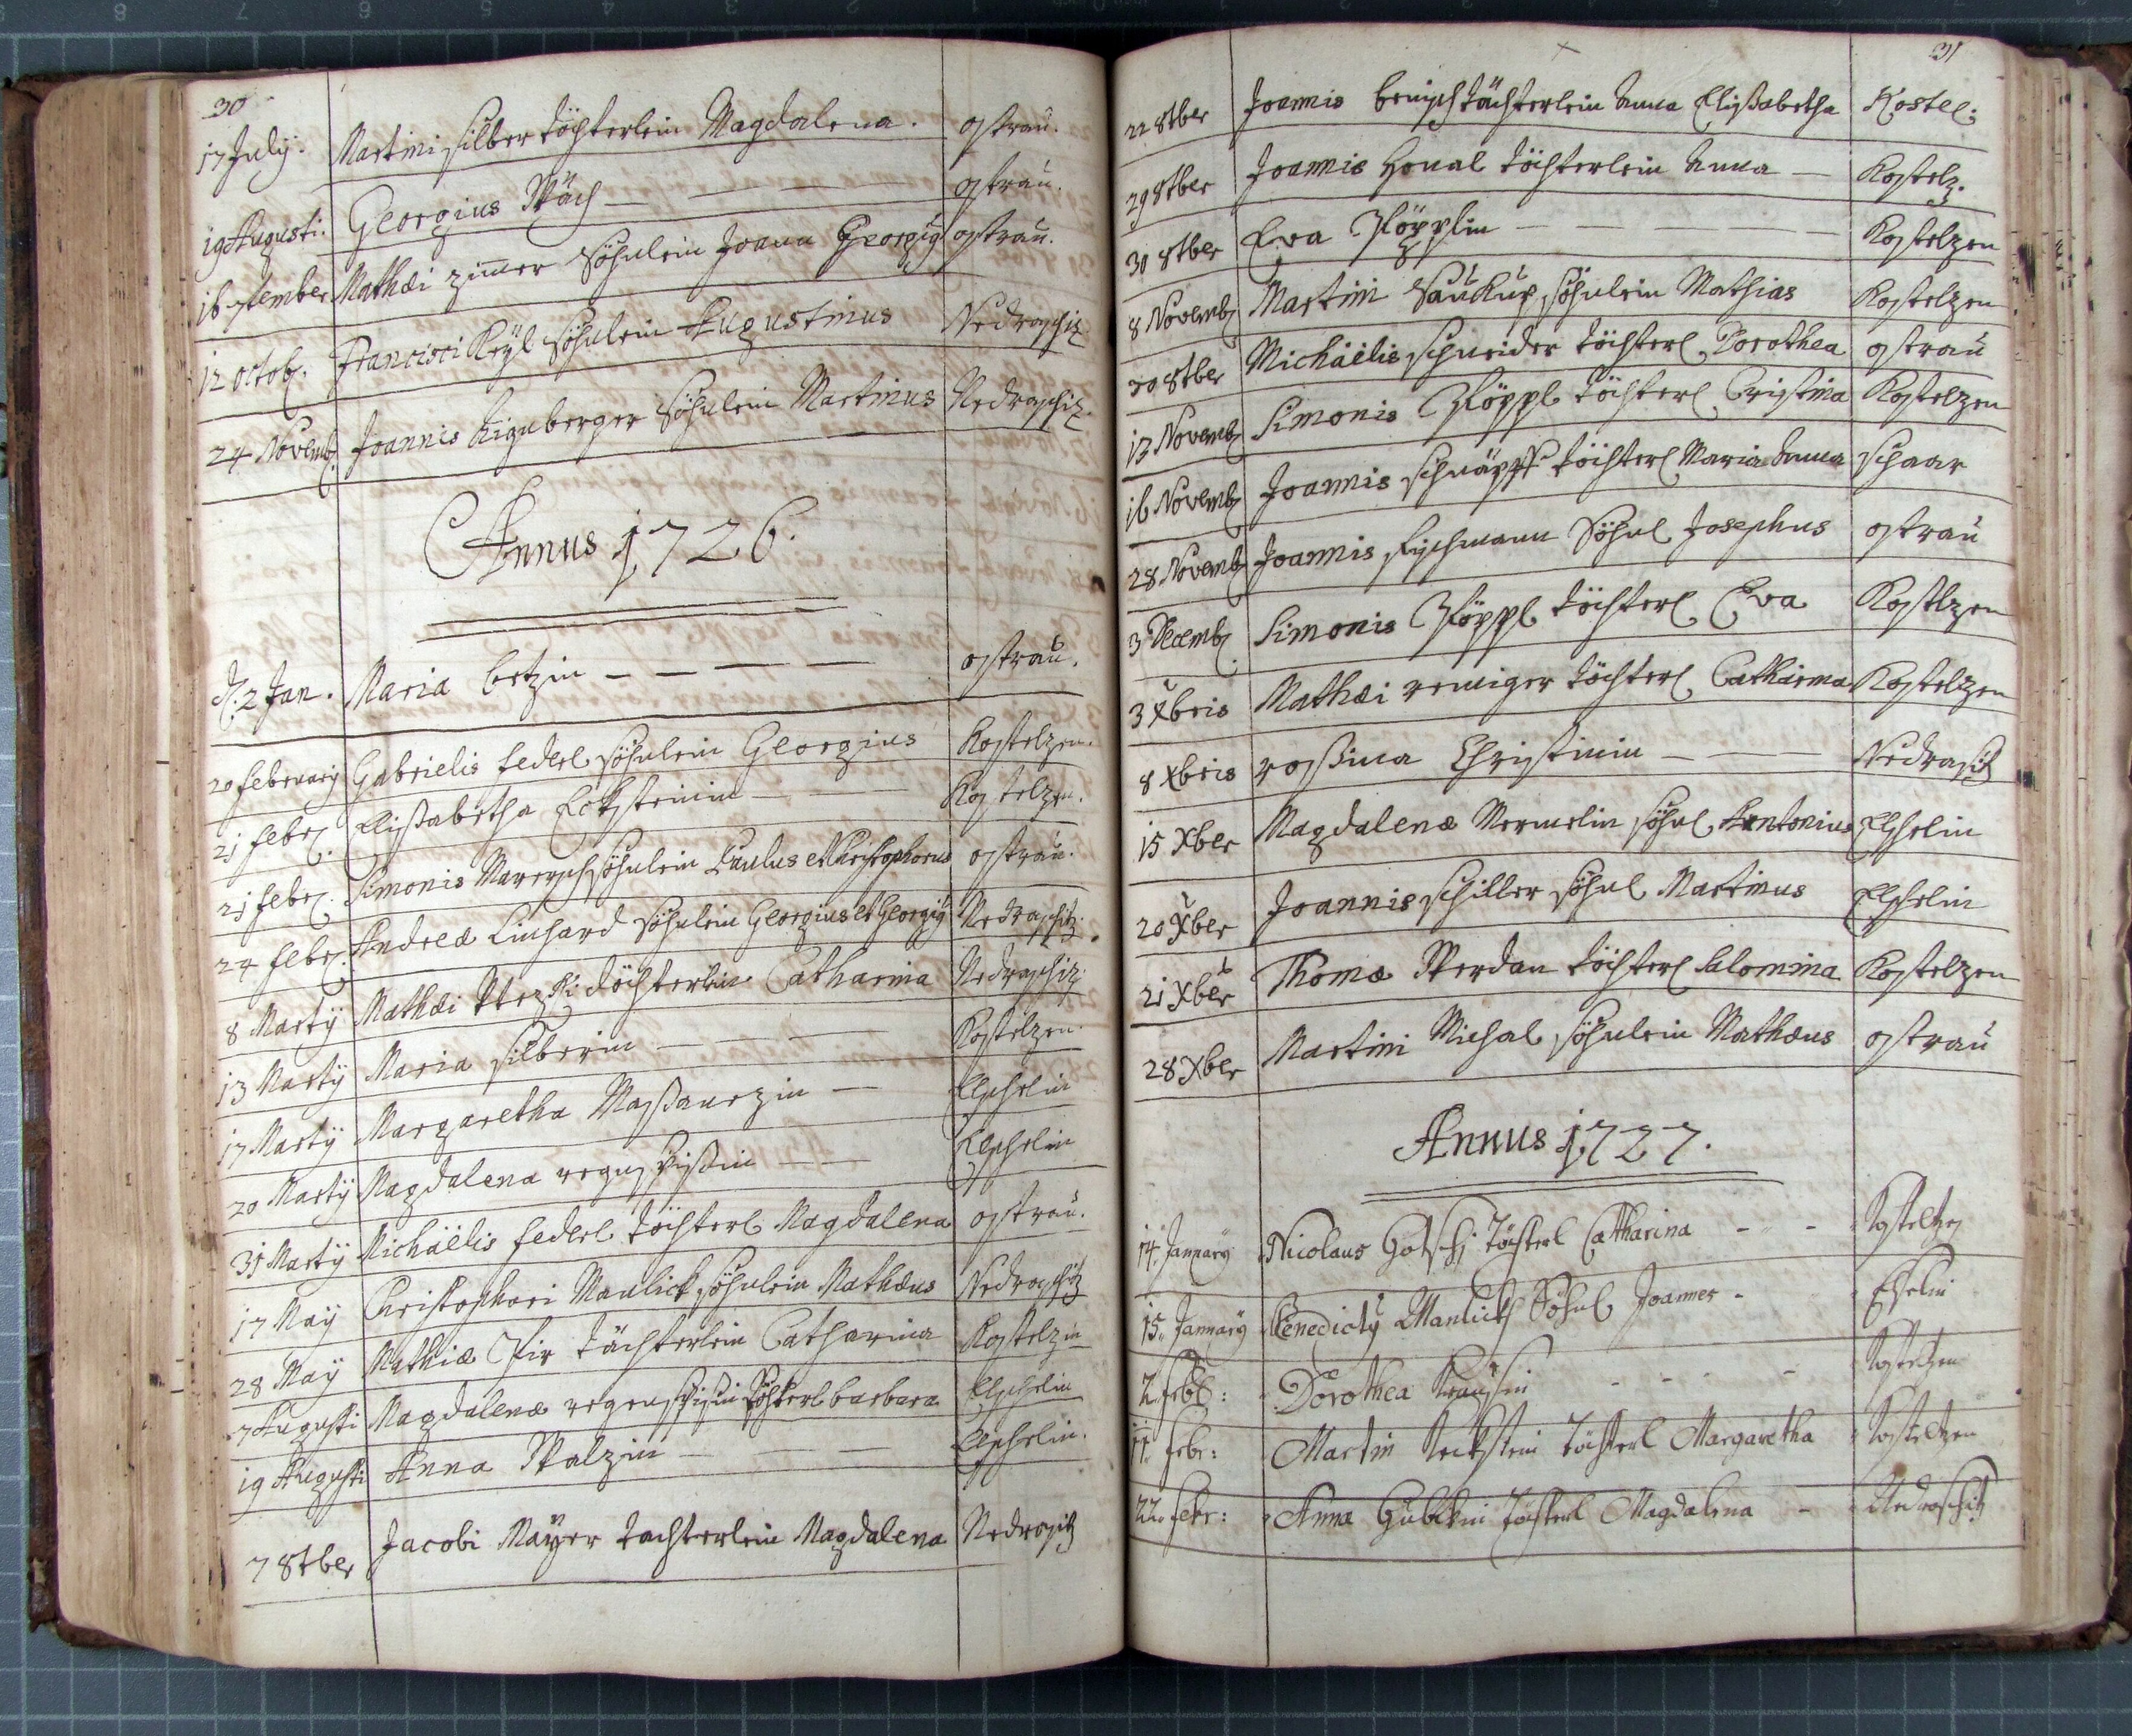 30
17 July. Martini silber töchterlein Magdalena. ostrau.
19 Augusti. Georgius Wäch — — — — ostrau.
16 7tember Mathæi zimer Söhnlein Joann Georgig ostrau.
12 octob. Francisci Keÿl söhnlein Augustinus Nedraschiz
24 Novemb. Joannis Aignberger Söhnlein Martinus Nedraschiz.
Annus 1726.
d. 2 Jan. Maria betzin — — — — ostrau.
20 februarij Gabrielis federl söhnlein Georgius Kostelzen.
21 febr. Elisabetha Ecksteinin — — Kostelzen.
21 febr. Simonis söhnlein Paulus et Christophorus ostrau.
24 febr. Andreæ Linhard söhnlein Georgius et Georgig Nedraschitz.
8 Martij Mathæi töchterlein Catharina Nedraschiz.
13 Martij Maria silberin — — — Kostelzen.
17 Martij Margaretha — Elschelin
20 Martij Magdalena — — Elschelin
31 Martij Michaëlis federl töchterl Magdalena ostrau.
17 Maÿ Christophori Manlick söhnlein Mathæus Nedraschitz
28 Maÿ Mathiæ Pir tächterlein Catharina Kostelzin
7 Augusti Magdalenæ töchterl barbara Elschelin
19 Augusti Anna Walzin — — — Elschelin.
7 8tber Jacobi Maÿer tochterlein Magdalena Nedrasitz
31
22 8tber Joannis tächterlein Anna Elisabetha Kostel:
29 8tber Joannis Honal töchterlein Anna — Kostelz.
30 8tber Eva Pöpplin — — — — Kostelzen
8 Novemb Martini Saukup söhnlein Mathias Kostelzen
30 8tber Michaëlis schneider töchterl Dorothea ostrau
13 Novemb Simonis Pöppl töchterl Cristina Kostelzen
16 Novemb Joannis schnäpff töchterl Maria Anna schaar
28 Novemb Joannis fischmann Söhnl Josephus ostrau
3 Decemb. Simonis Pöppl töchterl Eva Kostlzen
3 Xbris Mathæi reniger töchterl Catharina Kostelzen
8 Xbris rosina Christinin — — Nedrasitz
15 Xber Magdalenæ söhnl Antonius Elschelin
20 Xber Joannis schiller söhnl Martinus Elschelin
21 Xber Thomæ Werdan töchterl Salomina Kostelzen
28 Xber Martini Michal söhnlein Mathæus ostrau
Annus 1727.
14. Januarÿ Nicolaus Gotschj töchterl Catharina - - Kosteltzen
15. Januarÿ Benedictÿ Manlick Söhnl Joannes - Elschelin
2. febr: Dorothea - - - - Kosteltzen
11. febr: Martin Eckstein töchterl Margaretha Kosteltzen
22. febr: Anna töchterl Magdalena - Nedraschitz